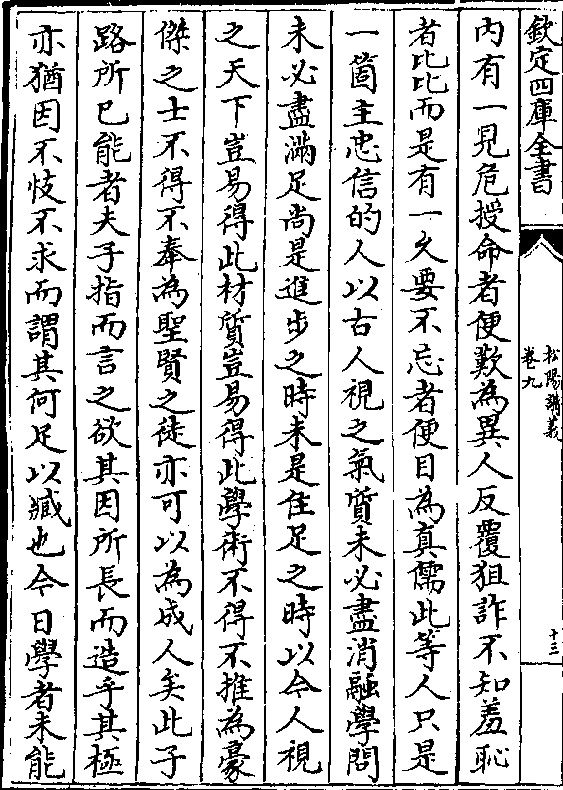 欽定四庫全書
松陽講義
卷九
十三
内有一見危授命者便歎為異人反覆狙詐不知羞恥
者比比而是有一久要不忘者便目為真儒此等人只是
一箇主忠信的人以古人視之氣質未必盡消融學問
未必盡滿足尚是進步之時未是住足之時以今人視
之天下豈易得此材質豈易得此學術不得不推為豪
傑之士不得不奉為聖賢之徒亦可以為成人矣此子
路所已能者夫子指而言之欲其因所長而造乎其極
亦猶因不忮不求而謂其何足以臧也今日學者未能